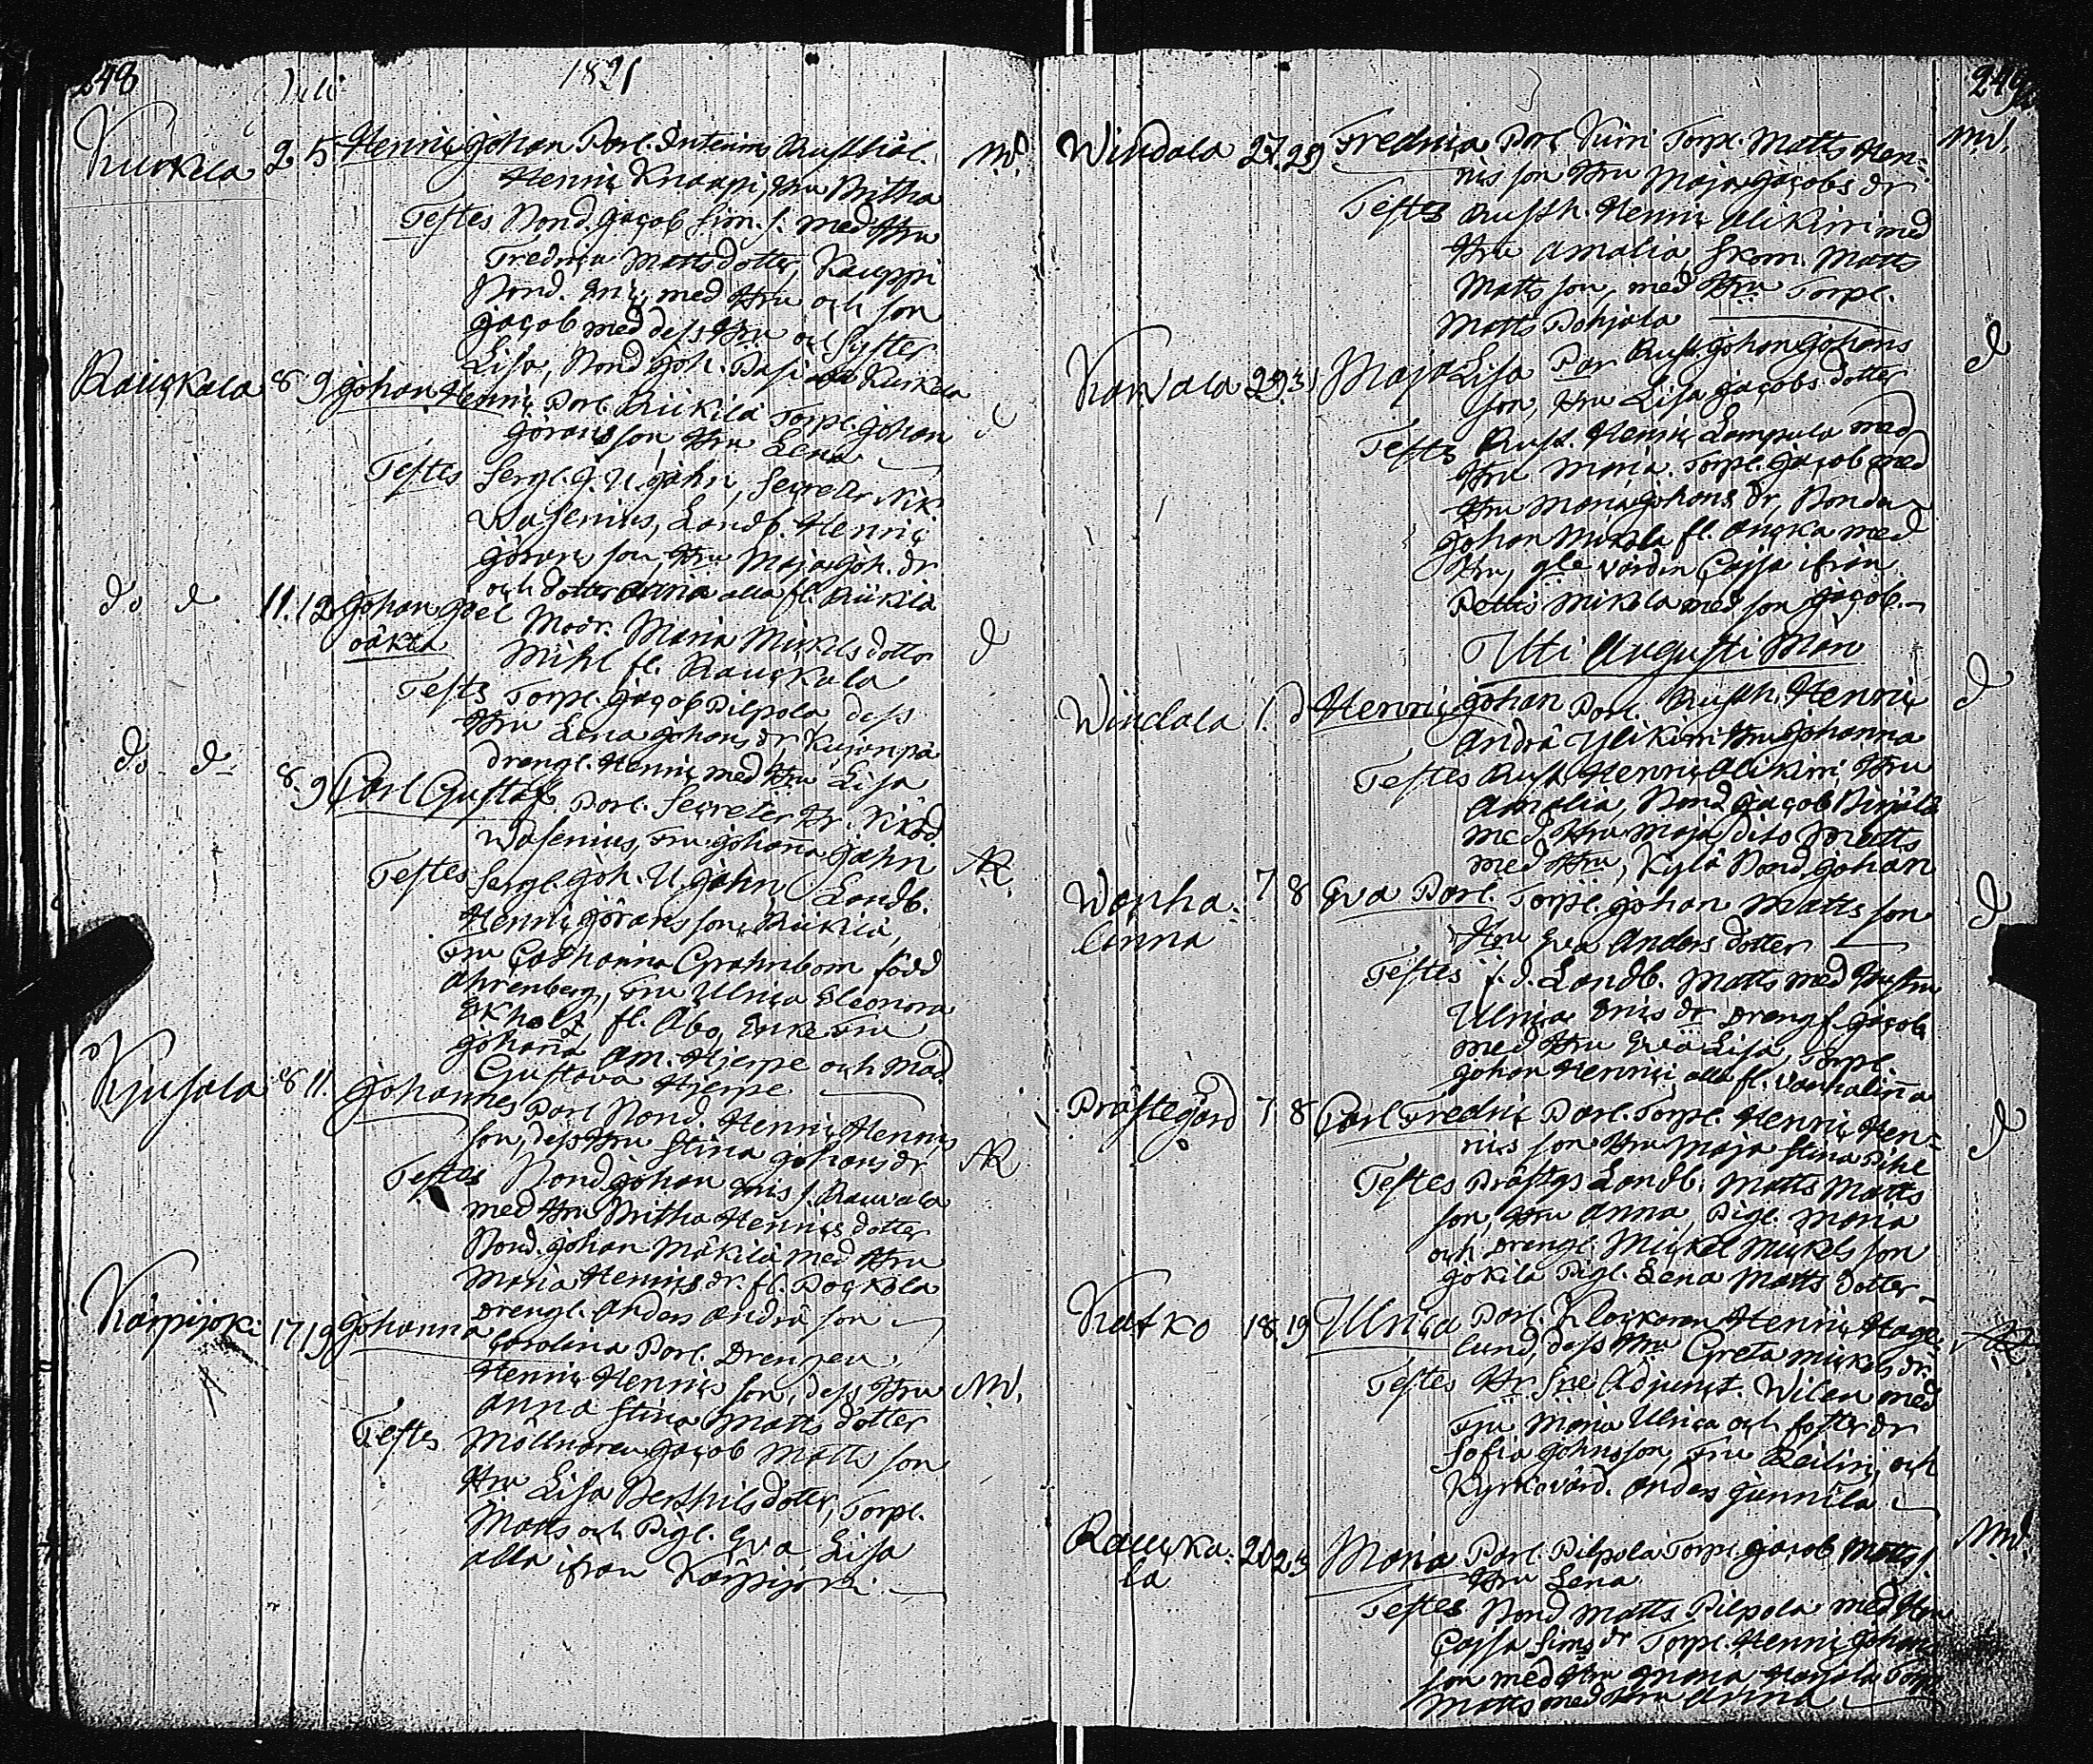 248
Juli 1821
Kurkela 2 5 Henric Johan Parl. Interims Rusthål. MW.
Henric Knaapi, Hru Britha
Testes Bond. Jacob Sim. s. med Hru
Fredrica Mattsdotter, Kauppi
Bond. Eric, med Hru och son
Jacob med dess Hru och Syster
Lisa, Bond Joh. Pasi Kurkela
Rauckala 8 9 Johan Henric Parl. Riikilä Torpl. Johan d
Görans son, Hru Lena
Testes Sergt. J. U. Jahn, Secreter Nik.
Wasenius, Landb. Henric
Görans son, Hru Maja Joh. dr
och dotter Anna alla fl. Riikilä
do d 11. 12 Johan Joel Modr. Maria Mickels dotter d
oäkta Mihl fl. Rauckala
Testes Torpl. Jacob Pilpola, dess
Hru Lena Johans dr, Kujanpä
drengl. Henric med Hru Lisa
do d 8. 9 Carl Gustaf Parl. Secreter Hr. Nikod.
Wasenius, Fru Johana Jahn AR.
Testes Sergt. Joh. U. Jahn, Landb.
Henric Görans son, Riikilä,
Fru Catharina Grahnbom född
Ahrenberg, Fru Ulrica Eleonora
Ekholf, fl. Åbo, Enke Fru
Johana Am. Hjerpe och Mad.
Gustava Hjerpe
Kjusala 8 11. Johannes Parl Bond. Henric Henrics
son, dess Hru Stina Johans dr AR
Testes Bond Johan Eris s. Rauvala
med Hru Britha Henrics dotter
Bond. Johan Mäkilä med Hru
Maria Henrics dr. fl. Pockola
Drengl. Anders Andrä son
Karpijoki 17 19 Johanna Carolina Parl. Drengen
Henric Henrics son, dess Hru MW.
Anna Stina Matts dotter
Testes Möllnaren Jacob Matts son
Hru Lisa Berthils dotter, Torpl.
Matts och Pigl. Eva Lisa
alla ifrån Karpijoki
249
Windala 27. 29 Fredrica Parl Kirri Torpl. Matts Hen- MW.
rics son Hru Maja Jacobs dr
Testes Rusth. Henric Alikirri med
Hru Amalia, Skom. Matts
Matts son, med Hru Torpl.
Matts Pohjala
Karvala 29 31 Maja Lisa Par Rust. Johan Johans d
son, Hru Lisa Jacobs dotter
Testes Rust. Henric Lampula med
Hru Maria. Torpl. Jacob med
Hru Maria Johans dr, Bonden
Johan Mikola fl. Ancka med
Hru, gle värdin Cajsa ifrån
Petti Mikola med son Jacob.
Uti Augusti Mån
Windala 1. d Henric Johan Parl. Rusth. Henric d
Andrä Ylikirri Hru Johanna
Testes Rust. Henric Alikirri Hru
Amalia, Bond Jacob
med Hru Maja dito Matts
med Hru, Kylä Bond Johan
Wanha- 7 8 Eva Parl. Torpl. Johan Matts son d
linna Hru Eva Anders dotter
Testes f. d. Landb. Matts med Hustru
Ulrica Eris dr Drengl. Jacob
med Hru Eva Lisa, Torpl.
Johan Henric alla fl. Vanhalina
Prästegård 7 8 Carl Fredric Parl. Torpl. Henric Hen- d
rics son Hru Maja Stina Pihl
Testes Prästgs Landb. Matts Matts
son, Hru Anna, Pigl. Maria
och Drengl. Mickel Mickels son
Jokila Pigl. Lena Matts dotter
Katko 18 19 Ulrica Parl. Klockaren Henric Hage- AR
lund, dess Hru Greta Mickels dr.
Testes Hr Sne Adjunct. Wilen med
Fru Maria Ulrica och foster dr
Sofia Johnsson, Fru och
Kyrkovärd. Anders Junnila
Rauka- 20 23 Maria Parl. Pilpola Torpl. Jacob Matts s. MW.
la Hru Lena
Testes Bond Matts Pilpola med Hru
Cajsa Sims dr Torpl. Henric Johans
son med Hru Maria
Matts med Hru Anna